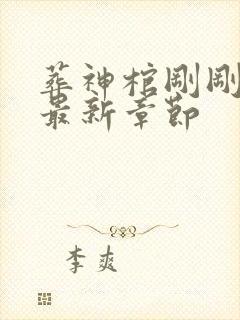 葬神棺剛剛
最新章節
李爽